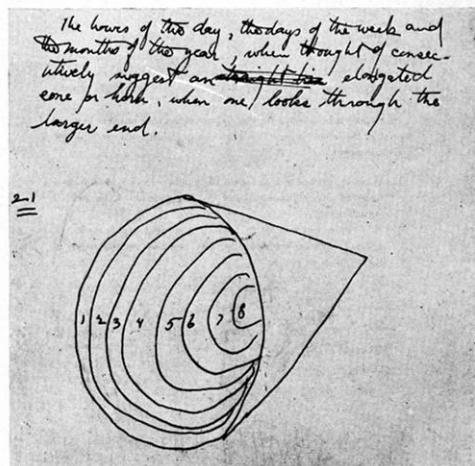 The hours of the day, the days of the week and
the months of the year, when thought of consec-
utively suggest an straight line elongated
cone or horn, when one looks through the
larger end.
21
1 2 3 4 5 6 7 8